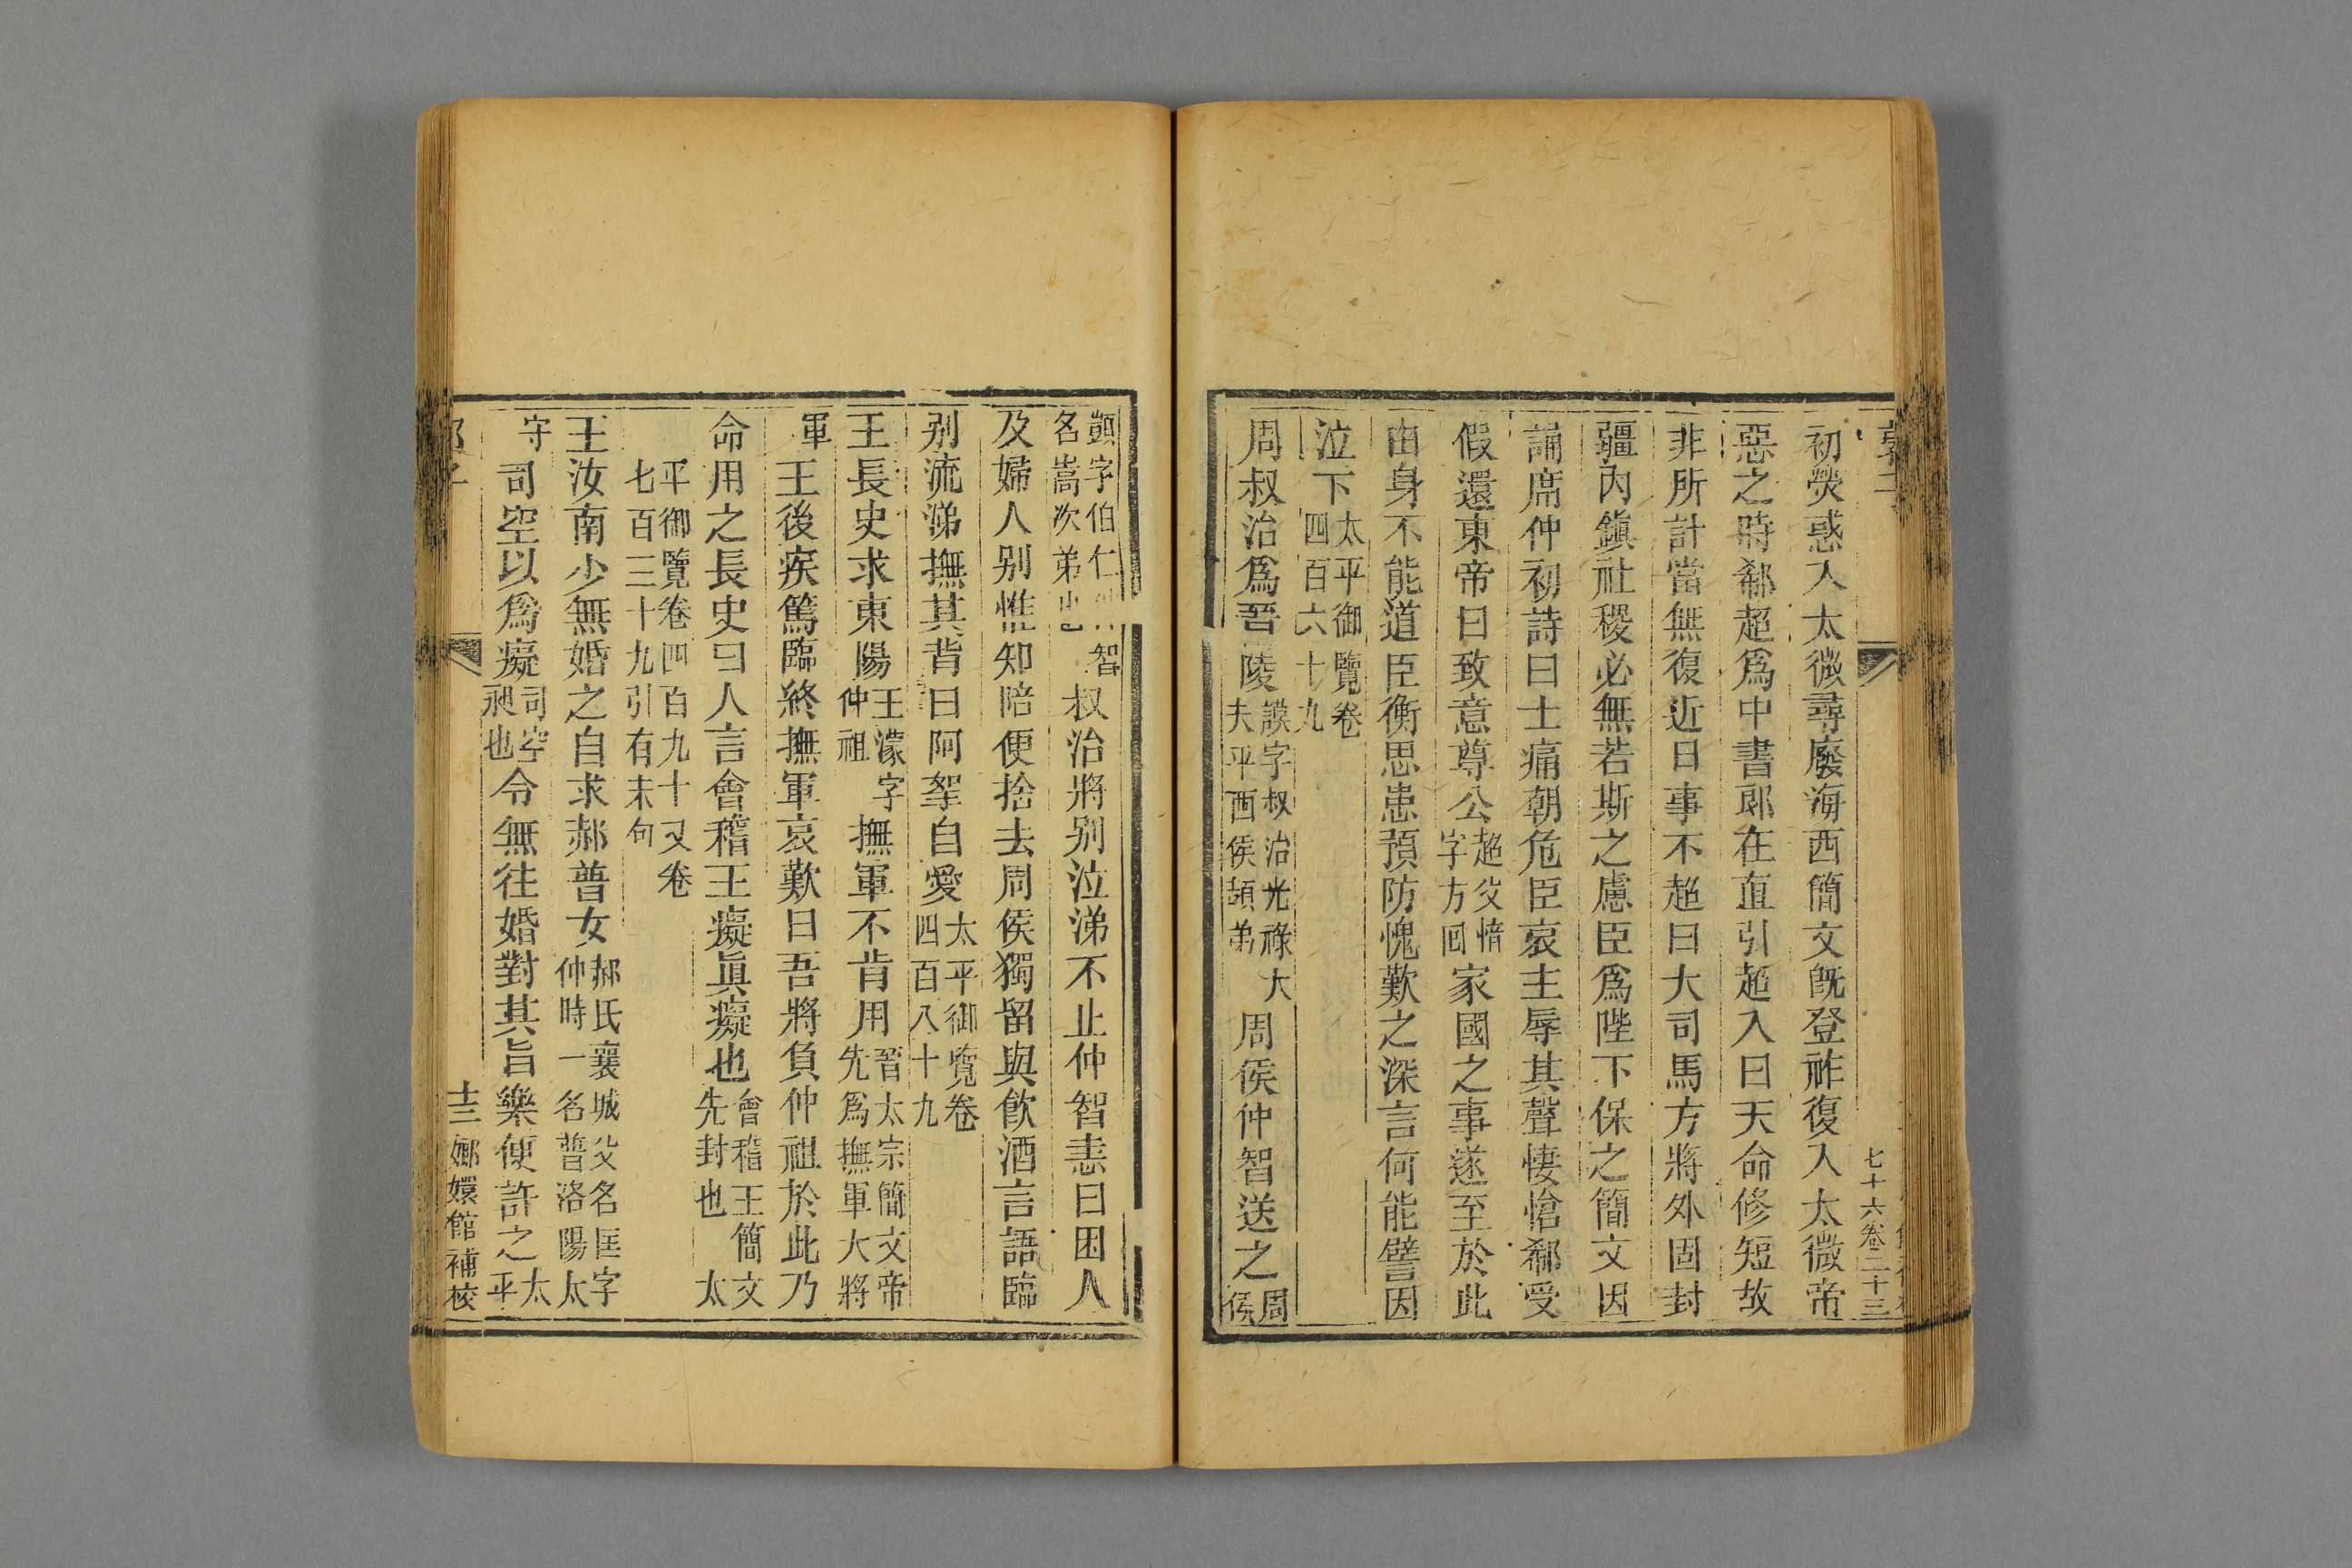 七十六卷二十三
初熒惑入太微尋廢海西簡文旣登祚復入太微帝
惡之時郗超爲中書郎在直引超入曰天命修短故
非所計當無復近日事不超曰大司馬方將外固封
疆內鎭社稷必無若斯之慮臣爲陛下保之簡文因
誦庾仲初詩曰士痛朝危臣哀主辱其聲悽愴郗受
假還東帝曰致意尊公超父愔字方回家國之事遂至於此
由身不能道臣衡思患預防愧歎之深言何能譬因
泣下太平御覽卷四百六十九
周叔治爲晉陵謨字叔治光祿大夫平西侯顗弟周侯仲智送之周侯
顗字伯仁仲智名嵩次弟也叔治將別泣涕不止仲智恚曰困人
及婦人別惟知陪便捨去周侯獨留與飮酒言語臨
別流涕撫其背曰阿孥自愛太平御覽卷四百八十九
王長史求東陽王濛字仲祖撫軍不肯用晉太宗簡文帝先爲撫軍大將
軍王後疾篤臨終撫軍哀歎曰吾將負仲祖於此乃
命用之長史曰人言會稽王癡眞癡也會稽王簡文先封也太
平御覽卷四百九十又卷七百三十九引有末句
王汝南少無婚之自求郝普女郝氏襄城父名匡字仲時一名普洛陽太
守司空以爲癡司空昶也令無往婚對其旨樂便許之太平
十三
嫏嬛館補校